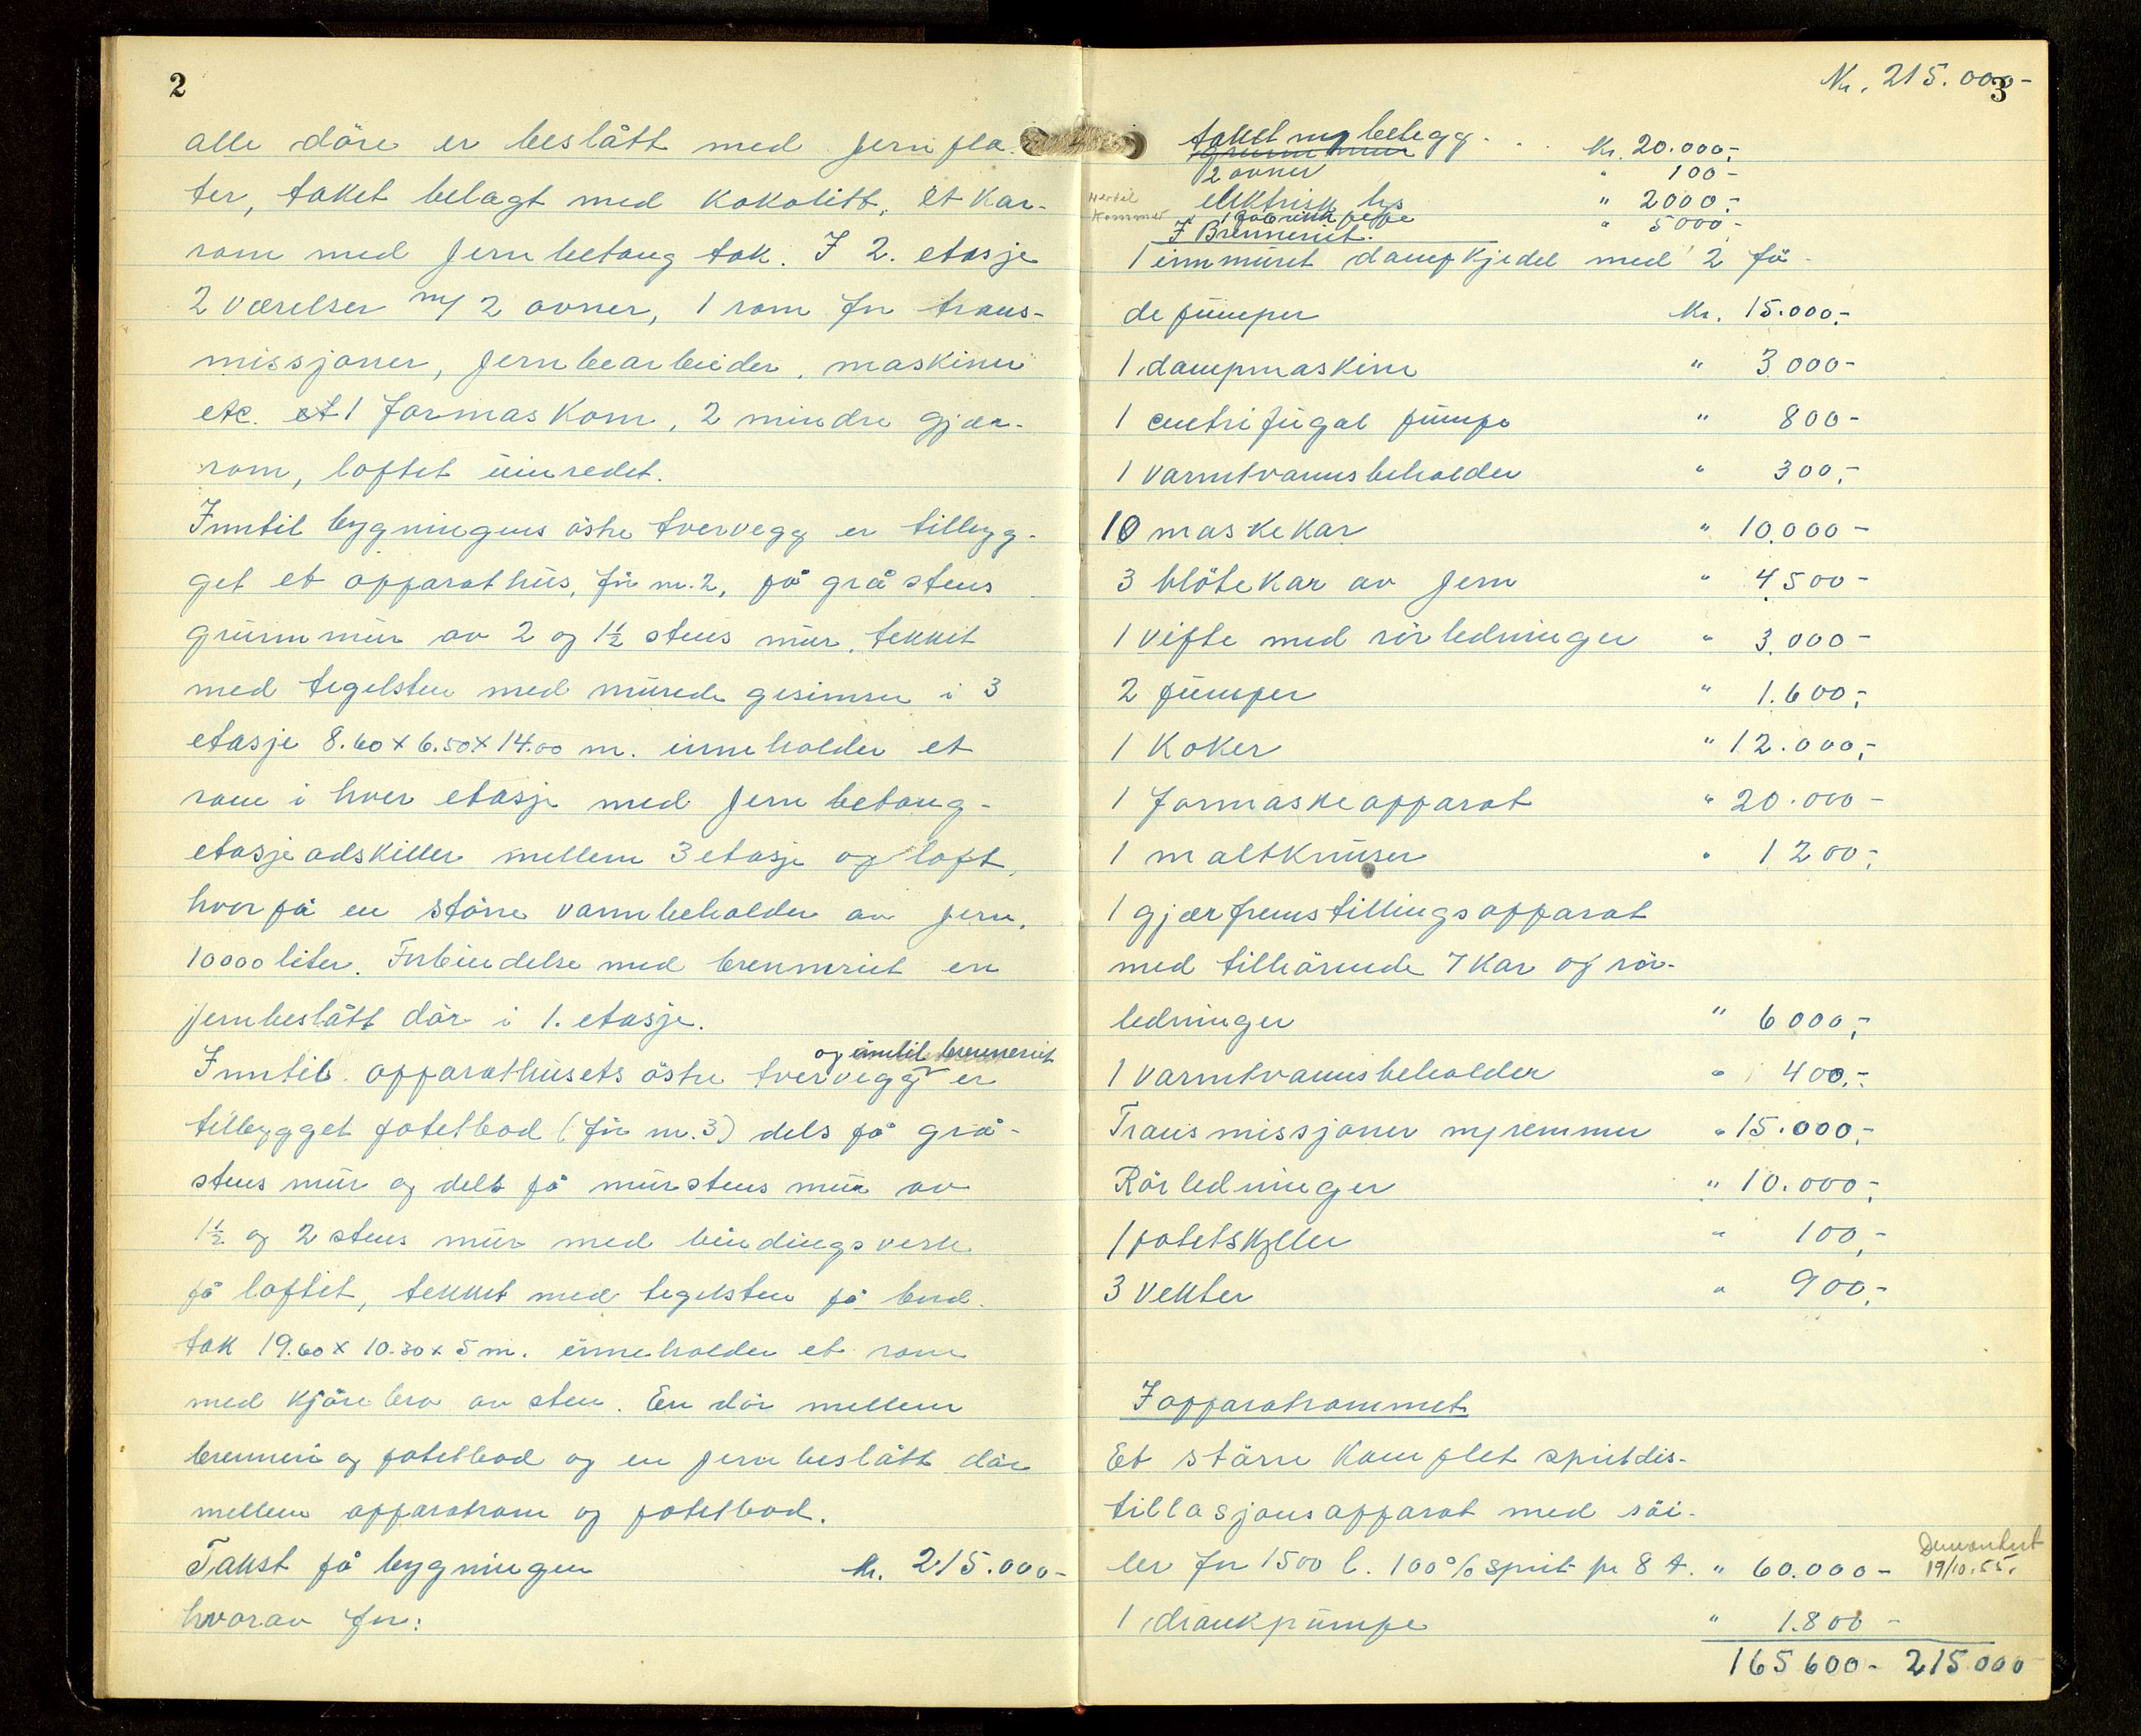 2
alle døre er beslått med Jernpla-
ter, taket belagt med Kokolitt, et Kar-
rom med Jernbetong tak. I 2. etasje
2 værelser m/ 2 ovner, 1 rom for trans-
missjoner, Jernbearbeider, maskiner
etc. et 1 Formaskom, 2 mindre gjær-
rom, loftet uinredet.
Inntil bygningens østre tvervegg er tilbyg-
get et apparathus, fir nr. 2, på gråstens
grunnmur av 2 og 1½ stens mur, tekket
med tegelsten med murede gesimser i 3
etasje 8.60 x 6.50 x 14.00 m. inneholder et
rom i hver etasje med Jernbetong-
etasjeadskiller mellem 3 etasje og loft,
hvorpå en större vannbeholder av Jern,
10000 liter. Forbindelse med brenneriet en
Jernbeslått dör i 1. etasje.
og inntil brenneriet
Inntil apparathusets östre tvervegg er
tilbygget potetbod (fir nr. 3) dels på grå-
stens mur og dels på murstens mur av
1½ og 2 stens mur med bindingsverk
på loftet, tekket med tegelsten på bord-
tak 19.60 x 10.30 x 5 m. inneholder et rom
med Kjörebro av sten. En dör mellem
brenneri og potetbod og en Jernbeslått dör
mellem apparatrom og potetbod.
Takst på bygningen kr. 215.000-
hvorav for:
3
Kr. 215.000-
taket m/ belegg - Kr. 20.000,-
grunnmur
2 ovner " 100-
Hertil kommer
elektrisk lys " 2000,-
1 fabrikk pipe " 5000,-
I Brenneriet.
1 innmuret dampkjedel med 2 fö-
depumper Kr. 15.000,-
1 dampmaskine " 3.000-
1 centrifugal pumpe " 800-
1 varmtvannsbeholder " 300,-
10 maskekar " 10.000-
3 blötekar av Jern " 4.500-
1 vifte med rörledninger " 3.000-
2 pumper " 1.600,-
1 Koker " 12.000,-
1 Formaskeapparat " 20.000-
1 maltknuser " 1200,-
1 gjærfremstillingsapparat
med tilhörende 7 Kar og rör-
ledninger " 6000,-
1 varmtvannsbeholder " 400,-
Transmissjoner m/ remmer " 15.000,-
Rörledninger " 10.000,-
1 potetskyller " 100,-
3 Vekter " 900,-
I apparatrommet
Et större Komplet spritdis-
tillasjonsapparat med söi-
ler for 1500 l. 100% sprit pr 8 t. " 60.000- Demontert
19/10.55.
1 drankpumpe " 1.800-
165600- 215000